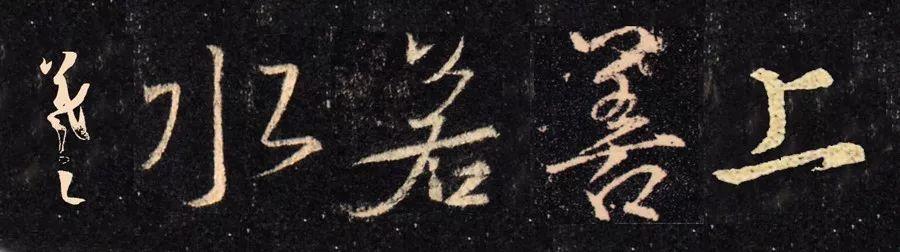 上善若水
羲之